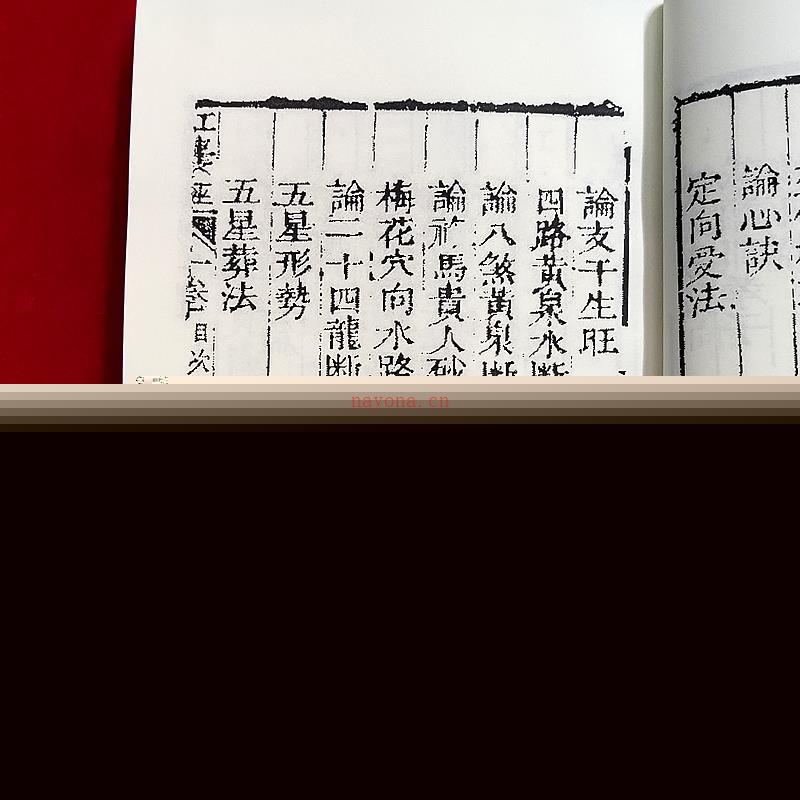 論心訣
定向受法
論支干生旺
四路黃泉水斷
論八煞黃泉斷
論祿馬貴人砂
梅花穴向水路
論二十四龍斷
五星形勢
五星葬法
卷一目次
navona.cn